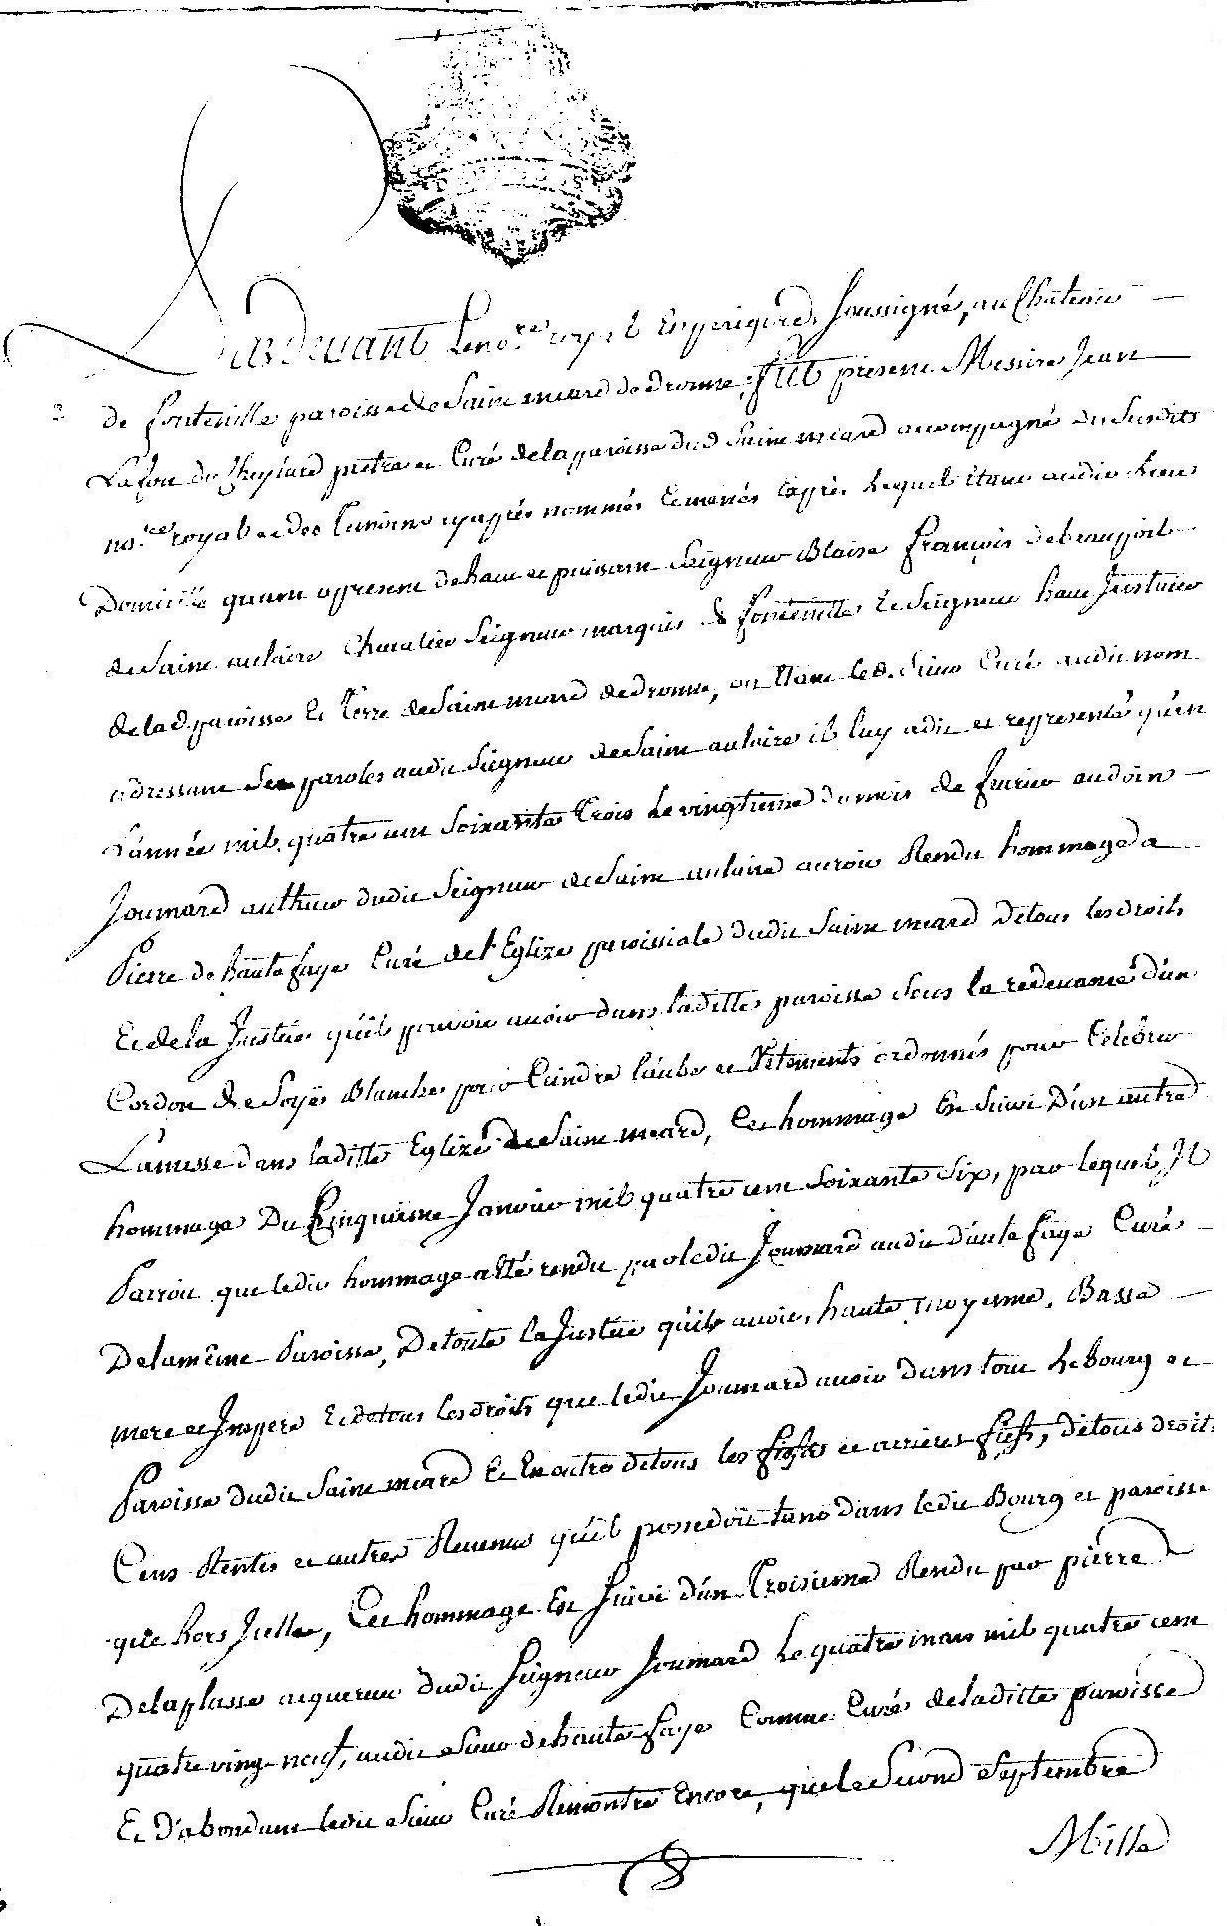 Pardevant Le no.re royal En perigord Soussigné, au Chateau
de fonteville paroisse de Saint meard de dronne, fut present Messire Jean
Lafon du Cheylard pretre et Curé de la paroisse dud Saint meard accompagné du Susdit
no.re royal et des temoins cy apres nommés Et menés Expres lequel Etant audit lieu
Domicille qu'un apresent de haut et puissant Seigneur Blaise françois de beaupoil
de Saint aulaire Chevalier Seigneur marquis de fonteville Et Seigneur haut Justicier
de lad. paroisse Et Terre de Saint meard de dronne, ou Etant led. Sieur Curé audit nom
adressant Ses paroles audit Seigneur de Saint aulaire il luy a dit et representé qu'en
L'année mil quatre cent Soixante Trois le vingtieme du mois de fevrier audoin
Joumard autheur dudit Seigneur de Saint aulaire auroit Rendu hommage a
Pierre de haute faye Curé de l'Eglize paroissiale dudit Saint meard De tous les droits
Et de la Justice qu'il pouvoit avoir dans laditte paroisse Sous la redevance d'un
Cordon de Soye Blanche pour Ceindre l'aube et Vetements ordonnés pour Celebrer
La messe dans laditte Eglize de Saint meard, Cet hommage Est Suivi D'un autre
hommage Du Cinquieme Janvier mil quatre cent Soixante Six, par lequel Il
Paroit que ledit hommage a Eté rendu par ledit Joumard audit d'aute faye Curé
De la même Paroisse, De toute la Justice qu'il avoit, haute moyenne, Basse
mere et Impere Et de tous les droits que ledit Joumard avoit dans tout Le bourg et
Paroisse dudit Saint meard Et En outre de tous les fiefs et arrieres fiefs, de tous droits
Cens Rentes et autres Revenus qu'il possedoit tant dans ledit Bourg et paroisse
que hors Jcelle, Cet hommage Est Suivi d'un Troisieme Rendu par pierre
Delaplasse acquereur dudit Seigneur Joumard le quatre mars mil quatre cent
quatre vingt neuf, audit Sieur de haute faye Comme Curé de laditte paroisse
Et d'abondant ledit Sieur Curé Remontre Encore, que le Second Septembre
Mille